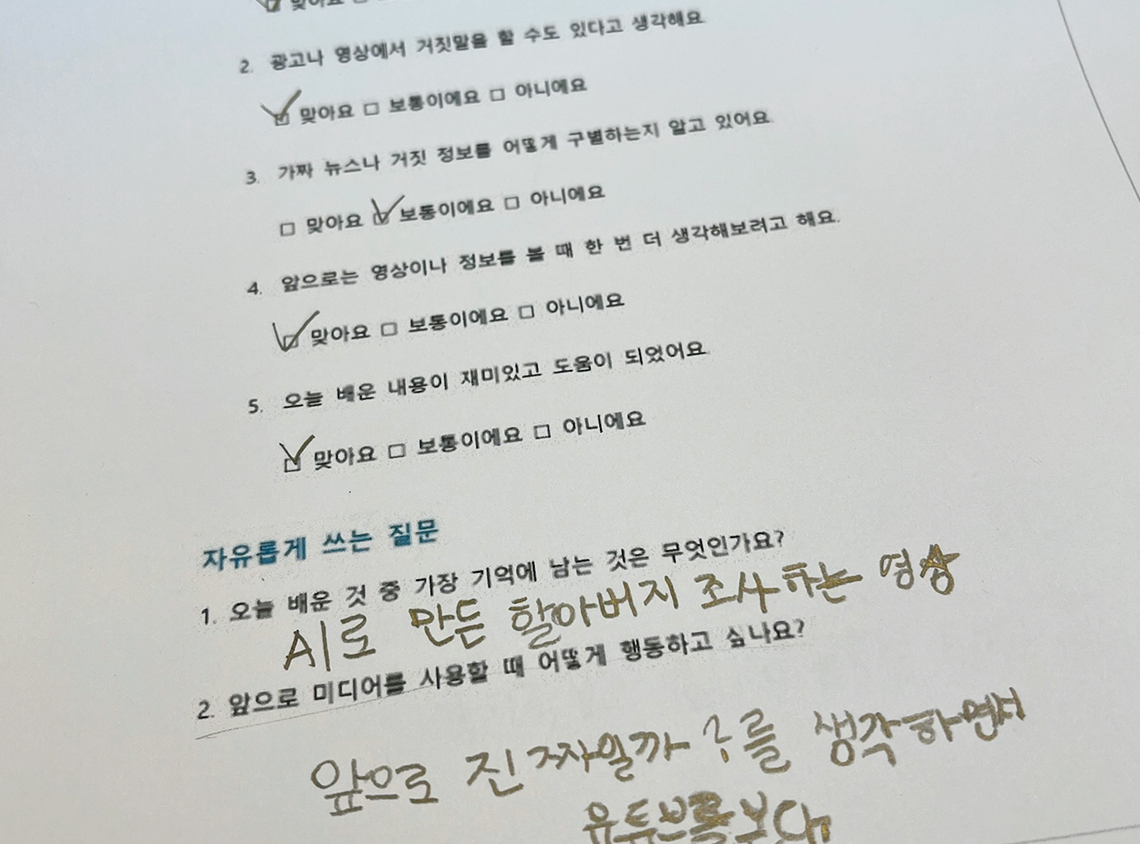 맞아요 □
2. 광고나 영상에서 거짓말을 할 수도 있다고 생각해요
☑ 맞아요 □ 보통이에요 □ 아니에요
3. 가짜 뉴스나 거짓 정보를 어떻게 구별하는지 알고 있어요.
□ 맞아요 ☑ 보통이에요 □ 아니에요
4. 앞으로는 영상이나 정보를 볼 때 한 번 더 생각해보려고 해요.
☑ 맞아요 □ 보통이에요 □ 아니에요
5. 오늘 배운 내용이 재미있고 도움이 되었어요.
☑ 맞아요 □ 보통이에요 □ 아니에요
자유롭게 쓰는 질문
1. 오늘 배운 것 중 가장 기억에 남는 것은 무엇인가요?
AI로 만든 할아버지 조사하는 영상
2. 앞으로 미디어를 사용할 때 어떻게 행동하고 싶나요?
앞으로 진짜일까?를 생각하면서
유튜브를 보다